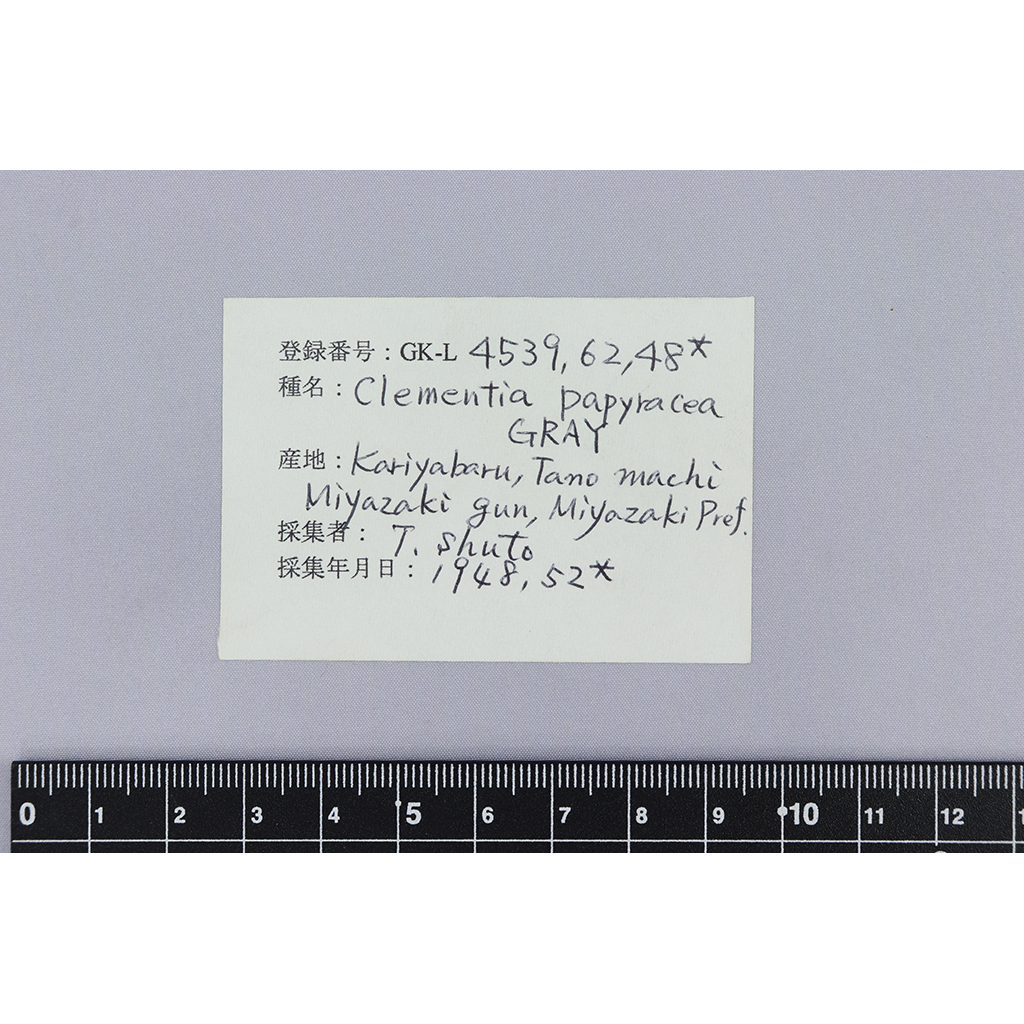 登録番号：GK-L 4539,62,48*
種名：Clementia papyracea
GRAY
産地：Kariyabaru, Tano machi
Miyazaki gun, Miyazaki Pref.
採集者： T. Shuto
採集年月日： 1948, 52*
0 1 2 3 4 5 6 7 8 9 10 11 12